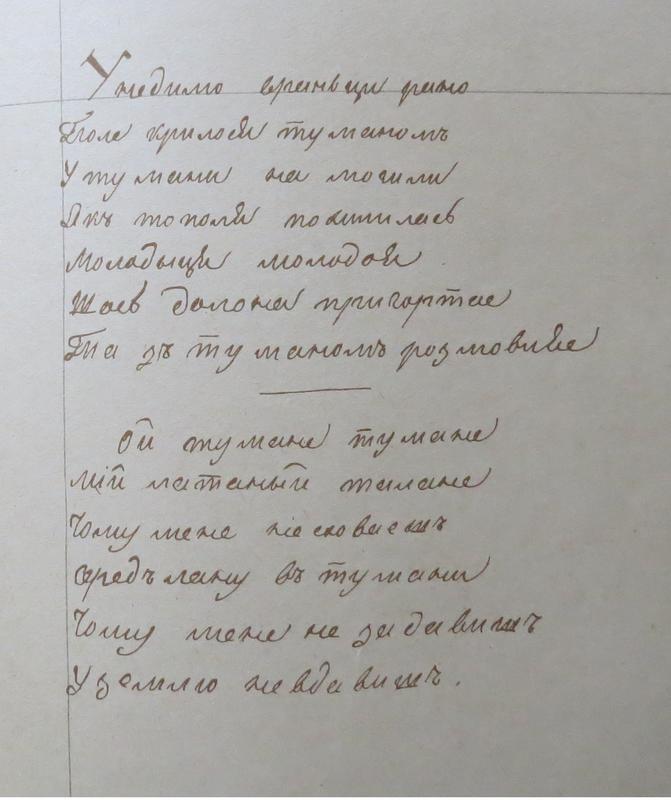 У недилю враньци рано
Поле крилося туманомъ
У тумани на могили
Якъ тополя похилилась
Молодыця молодая
Щось до лона пригортае
Та зъ туманомъ розмовляе
Ой тумане тумане
Мій латаный талане
Чому мене несховаешъ
Средъ лану въ тумани
Чому мене не задавишъ
У землю невдавишъ.